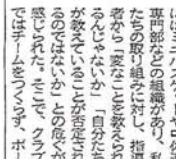 はミニバスケット
専門部などの組織があり、私
たちの取り組みに対し、指導
者から「変なことを教えられ
るんじゃないか」「自分たち
が教えていることが否定され
るのではないか」との危ぐが
感じられた。そこで、クラブ
ではチームをつくらず、ボー